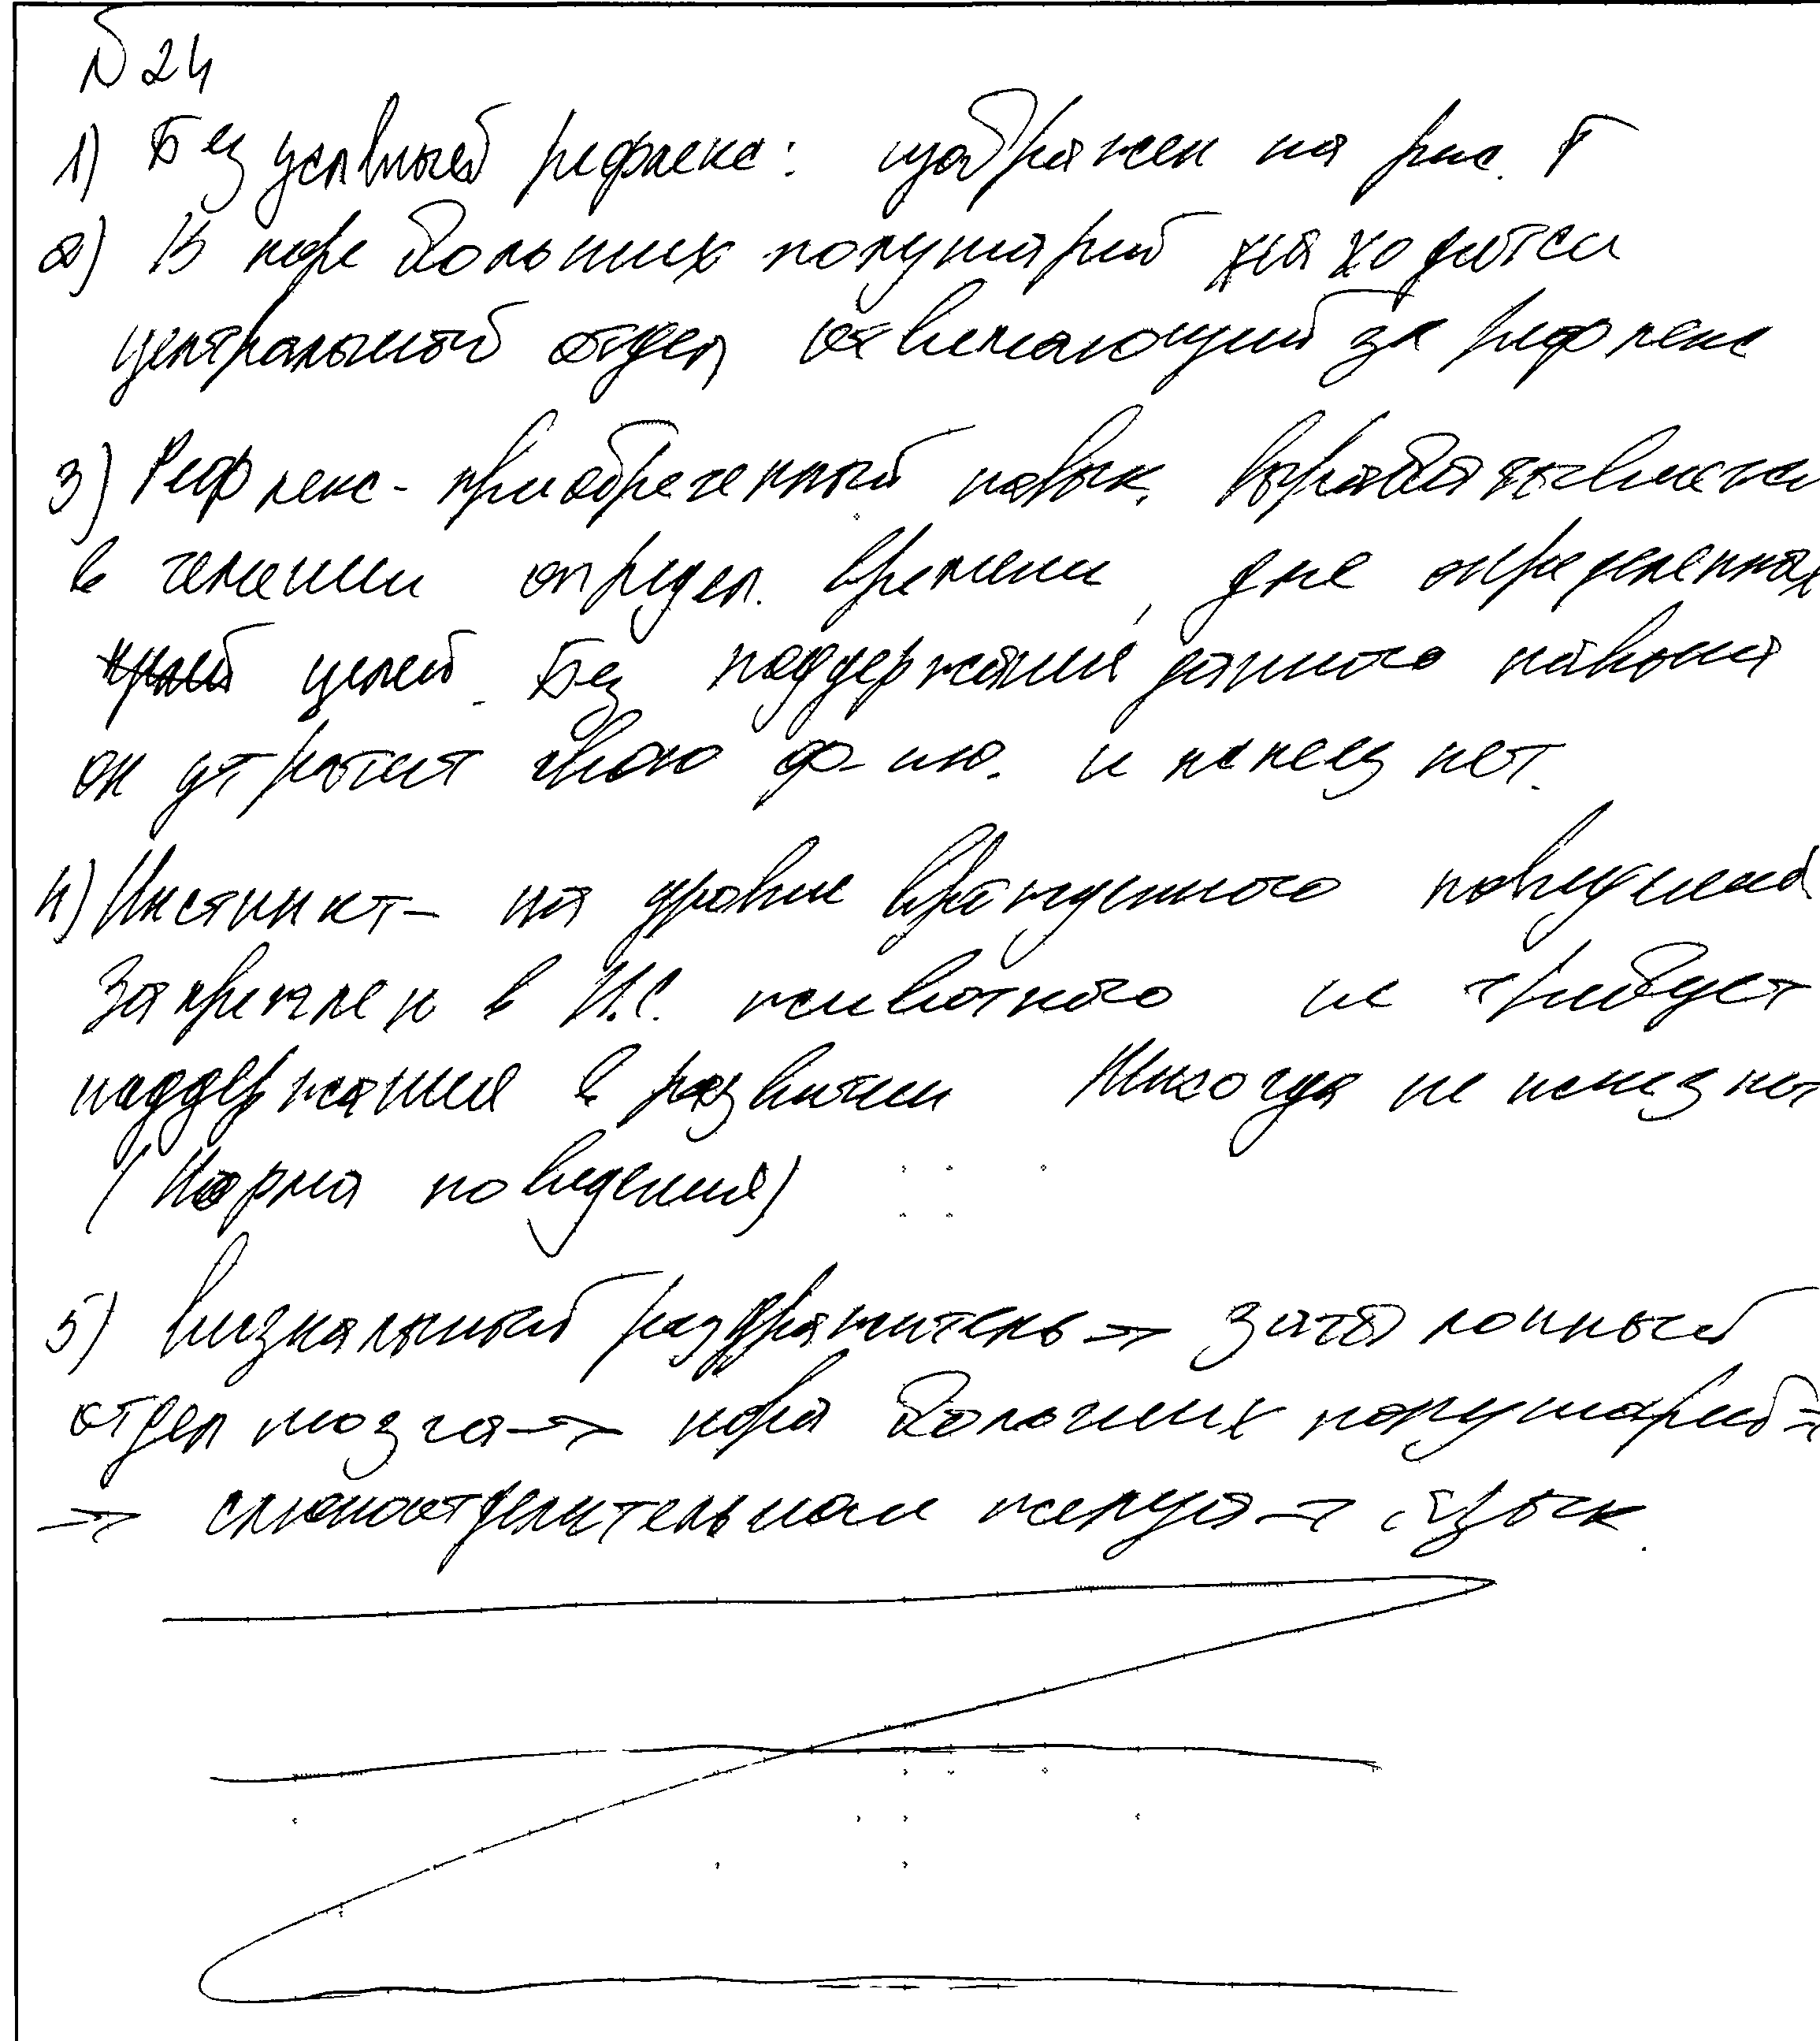 № 24
1) Безусловный рефлекс: изображен на рис. Г
2) В коре больших полушарий находится
центральный отдел, отвечающий за рефлекс
3) Рефлекс - приобретенный навык. Вырабатывается
в течении определ. времени, для определенных
целей. Без поддержания данного навыка
он утратит свою ф-ию. и исчезнет.
4) Инстинкт - на уровне врожденного поведения.
Закреплен в Н.С. животного не требует
поддержания в развитии Никогда не исчезнет
(Норма поведения)
5) Визуальный раздражитель → затылочный
отдел мозга → кора больших полушарий →
→ слюноотделительная железа → язык.